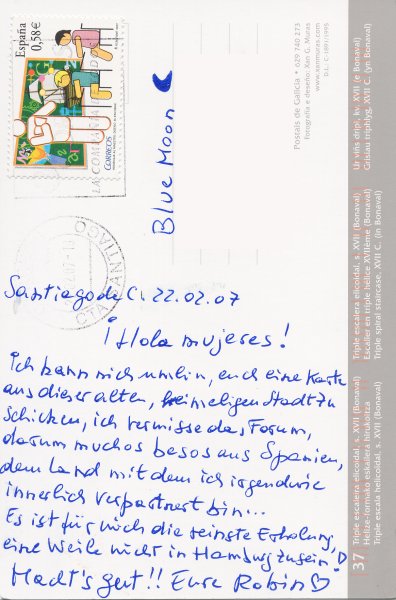 España
0,58€
CORREOS
Blue Moon
Postais de Galicia • 629 740 273
fotografía e deseño: Xan G. Muras
www.xanmuras.com
D.L.: C-189/1995
Santiago de C. 22.02.07
¡Hola mujeres!
Ich kann nich umhin, euch eine Karte
aus dieser alten, heimeligen Stadt zu
schicken, ich vermisse das Forum,
darum muchos besos aus Spanien,
dem Land mit dem ich irgendwie
innerlich verpartnert bin...
Es ist für mich die reinste Erholung,
eine Weile nicht in Hamburg zu sein! :D
Macht's gut!! Eure Robin♡
37
Triple escaleira elicoidal, s. XVII (Bonaval)
Helize-formako eskailera hirukoitza
Triple escala helicoïdal, s. XVII (Bonaval)
Triple escalera elicoidal, s. XVII (Bonaval)
Escalier en triple hélice XVIIème (Bonaval)
Triple spiral staircase, XVII C. (in Bonaval)
Ur viñs dripl, kv. XVII (e Bonaval)
Grisiau triphlyg, XVII C. (yn Bonaval)